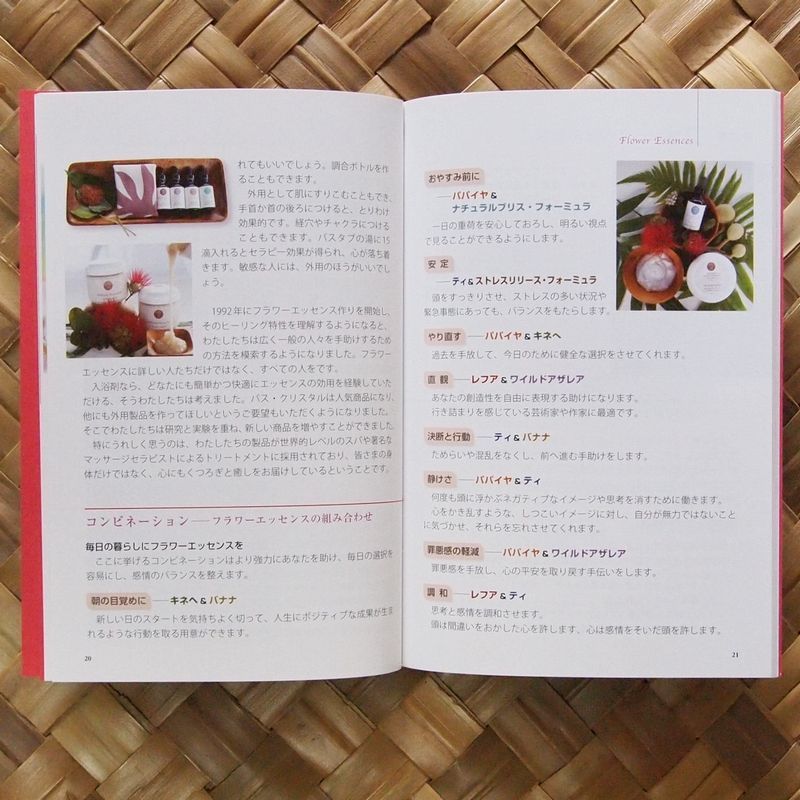 れてもいいでしょう。調合ボトルを作
ることもできます。
外用として肌にすりこむこともでき、
手首か首の後ろにつけると、とりわけ
効果的です。経穴やチャクラにつける
こともできます。バスタブの湯に15
滴入れるとセラピー効果が得られ、心が落ち着
きます。敏感な人には、外用のほうがいいでし
ょう。
1992年にフラワーエッセンス作りを開始し、
そのヒーリング特性を理解するようになると、
わたしたちは広く一般の人々を手助けするため
の方法を模索するようになりました。フラワー
エッセンスに詳しい人たちだけではなく、すべての人を です。
入浴剤なら、どなたにも簡単かつ快適にエッセンスの効用を経験していた
だける、そうわたしたちは考えました。バス・クリスタルは人気商品になり、
他にも外用製品を作ってほしいというご要望もいただくようになりました。
そこでわたしたちは研究と実験を重ね、新しい商品を増やすことができました。
特にうれしく思うのは、わたしたちの製品が世界的レベルのスパや著名な
マッサージセラピストによるトリートメントに採用されており、皆さまの身
体だけではなく、心にもくつろぎと癒しをお届けしているということです。
コンビネーション──フラワーエッセンスの組み合わせ
毎日の暮らしにフラワーエッセンスを
ここに挙げるコンビネーションはより強力にあなたを助け、毎日の選択を
容易にし、感情のバランスを整えます。
朝の目覚めに──キネヘ & バナナ
新しい日のスタートを気持ちよく切って、人生にポジティブな成果が生ま
れるような行動を取る用意ができます。
20
Flower Essences
おやすみ前に
──パパイヤ &
ナチュラルブリス・フォーミュラ
一日の重荷を安心しておろし、明るい視点
で見ることができるようにします。
安 定
──ティ&ストレスリリース・フォーミュラ
頭をすっきりさせ、ストレスの多い状況や
緊急事態にあっても、バランスをもたらします。
やり直す──パパイヤ & キネヘ
過去を手放して、今日のために健全な選択をさせてくれます。
直 観──レフア & ワイルドアザレア
あなたの創造性を自由に表現する助けになります。
行き詰まりを感じている芸術家や作家に最適です。
決断と行動──ティ & バナナ
ためらいや混乱をなくし、前へ進む手助けをします。
静けさ──パパイヤ & ティ
何度も頭に浮かぶネガティブなイメージや思考を消すために働きます。
心をかき乱すような、しつこいイメージに対し、自分が無力ではないこと
に気づかせ、それらを忘れさせてくれます。
罪悪感の軽減──パパイヤ & ワイルドアザレア
罪悪感を手放し、心の平安を取り戻す手伝いをします。
調 和──レフア & ティ
思考と感情を調和させます。
頭は間違いをおかした心を許します、心は感情をそいだ頭を許します。
21